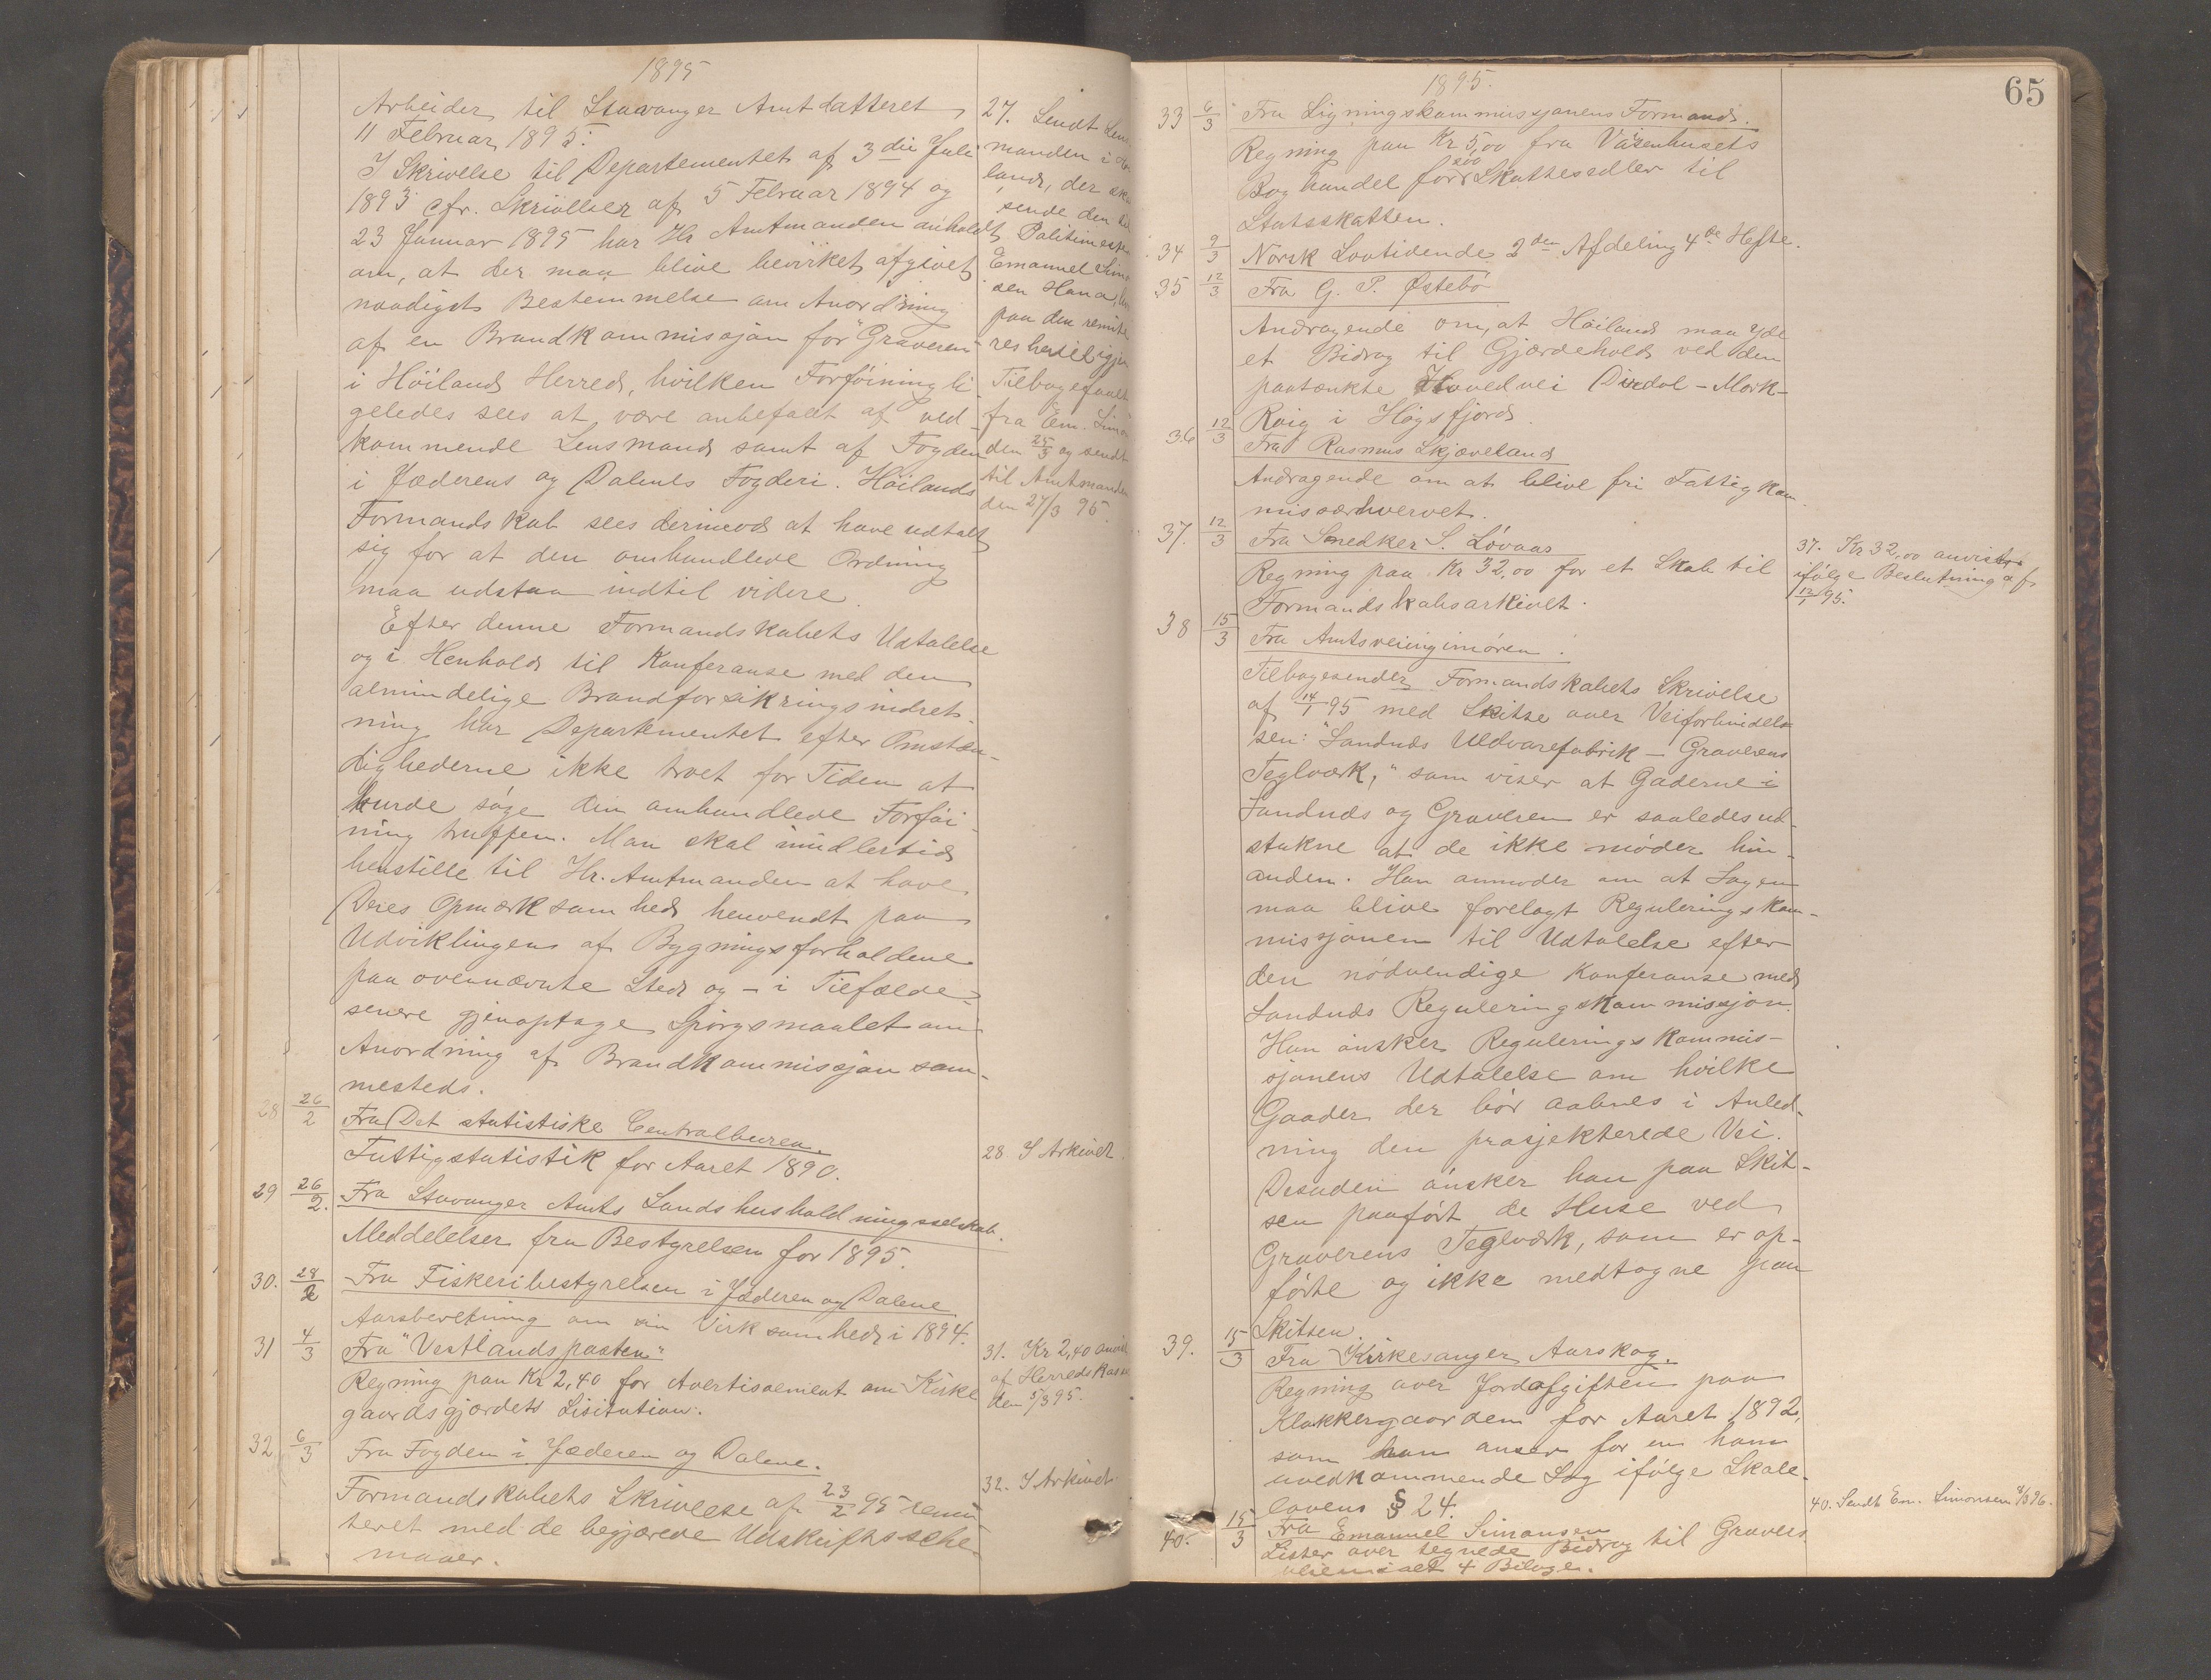 1895
Arbeider til Stavanger Amt datteret
11 Februar 1895:
I Skrivelse til Departementet af 3die Juli
1893 cfr. Skrivelser af 5 Februar 1894 og
23 Januar 1895 har Hr Amtmanden anholdt
om, at der maa blive bevirket afgivet
naadigst Bestemmelse om Anordning
af en Brandkommissjon for "Graveren"
i Höiland Herred, hvilken Forföining li-
geledes sees at være anbefalet af ved-
kommende Lensmand samt af Fogden
i Jæderens og Dalenes Fogderi. Höilands
Formandskab sees derimod at have udtalt
sig for at den omhandlede Ordning
maa udstaa indtil videre.
Efter denne Formandskabets Udtalelse
og i Henhold til Konferanse med den
almindelige Brandforsikringsindret-
ning har Departementet efter Omstæn-
dighederne ikke troet for Tiden at
burde söge den omhandlede Forföi-
ning truffen. Man skal imidlertid
henstille til Hr. Amtmanden at have
Deres Opmærksomhed henvendt paa
Udviklingen af Bygningsforholdene
paa ovennævnte Sted og - i Tilfælde -
senere gjenoptage Spörgsmaalet om
Anordning af Brandkommissjon sam-
mesteds.
28 26/2 Fra Det statistiske Centralbureau.
Fattigstatistik for Aaret 1890.
29 26/2. Fra Stavanger Amts Landshusholdningsselskab.
Meddelelser fra Bestyrelsen for 1895.
30. 28/2 Fra Fiskeribestyrelsen i Jæderen og Dalene
Aarsberetning om sin Virksomhed i 1894.
31 4/3 Fra "Vestlandsposten"
Regning paa Kr 2,40 for Avertissement om Kirke
gaardsgjærdets Lisitation.
32 6/3 Fra Fogden i Jæderen og Dalene.
Formandskabets Skrivelse af 23/2 95 remit
teret med de begjærede Udskriftssche-
maer.
27. Sendt Lens
manden i
land, der ska
sende den til
Politimester
Emanuel Simo
sen Hana,
paa den remitte
res hertil igjen
Tilbagefaaet
fra Em. Simo
den 25/3 og sendt
til Amtmanden
den 27/3 95.
28. I Arkivet.
31. Kr 2,40 anvist
af Herredskassen
den 5/3 95.
32. I Arkivet.
1895.
65
33 6/3 Fra Ligningskommissjonens Formand.
Regning paa Kr 5,00 fra Vaisenhusets
Boghandel for 500 Skattesedler til
Statsskatten.
34 9/3 Norsk Lovtidende 2den Afdeling 4de Hefte.
35 12/3 Fra G. P. Østebö
Andragende om, at Höiland maa yde
et Bidrag til Gjærdehold ved den
paatænkte Hovedvei Dirdal - Mork-
Roig i Högsfjord.
36 12/3 Fra Rasmus Skjæveland
Andragende om at blive fri Fattigkom
misærhvervet.
37. 12/3 Fra Snedker S. Lövaas
Regning paa Kr 32,00 for et Skab til
Formandskabsarkivet.
38 15/3 Fra Amtsveiingeniören.
Tilbagesender Formandskabets Skrivelse
af 14/1 95 med Skitse over Veiforbindel-
sen: "Sandnes Uldvarefabrik - Graverens
Teglværk," som viser at Gaderne i
Sandnes og Graveren er saaledes ud-
stukne at de ikke möder hin-
anden. Han anmoder om at Sagen
maa blive forelagt Reguleringskom-
missjonen til Udtalelse efter
den nödvendige Konferanse med
Sandnes Reguleringskommissjon.
Han önsker Reguleringskommis-
sjonens Udtalelse om hvilke
Gaader der bör aabnes i Anled-
ning den prosjekterede Vei.
Desuden önsker han paa Skit-
sen paafört de Huse ved
Graverens Teglværk, som er op-
förte og ikke medtagne paa
Skitsen.
39. 15/3 Fra Kirkesanger Aarskog.
Regning over Jordafgiften paa
Klokkergaarden for Aaret 1892,
som han anser for en ham
uvedkommende Sag ifölge Skole-
lovens § 24.
40. 15/3 Fra Emanuel Simonsen
Lister over tegnede Bidrag til Gravers
veien i alt 4 Bilage.
37. Kr 32,00 anvist
ifölge Beslutning af
12/1 95.
40. Sendt Em. Simonsen 7/3 96.